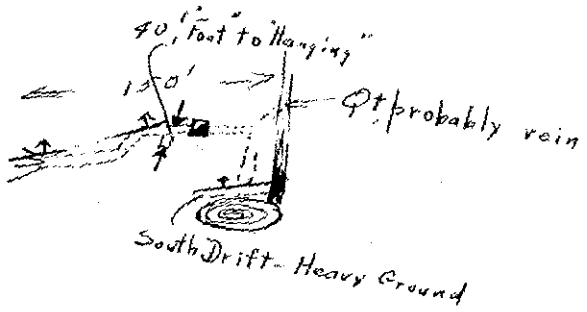 40' "Foot" to "Hanging"
150'
Qt, probably vein
South Drift - Heavy Ground